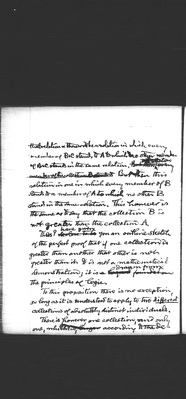 that relation is the relation in which every
member of B&C stand, to A to which no other member
of B&C stand in the same relation,
But then this
relation is one in which every member of B
stand to a member of A to which no other B
stand in the same relation. This however is
the same as to say that the collection B is
not greater than the collection A.
Thus I have given you an entire sketch
of the perfect proof that if one collection is
greater than another that other is not
greater than it. It is not a mathematical
demonstration; it is a
the principles of logic.
To this proposition there is no exception,
so long as it is understood to apply to two different
collections of absolutely distinct individuals.
There is however one collection, and only
one, according to the de-